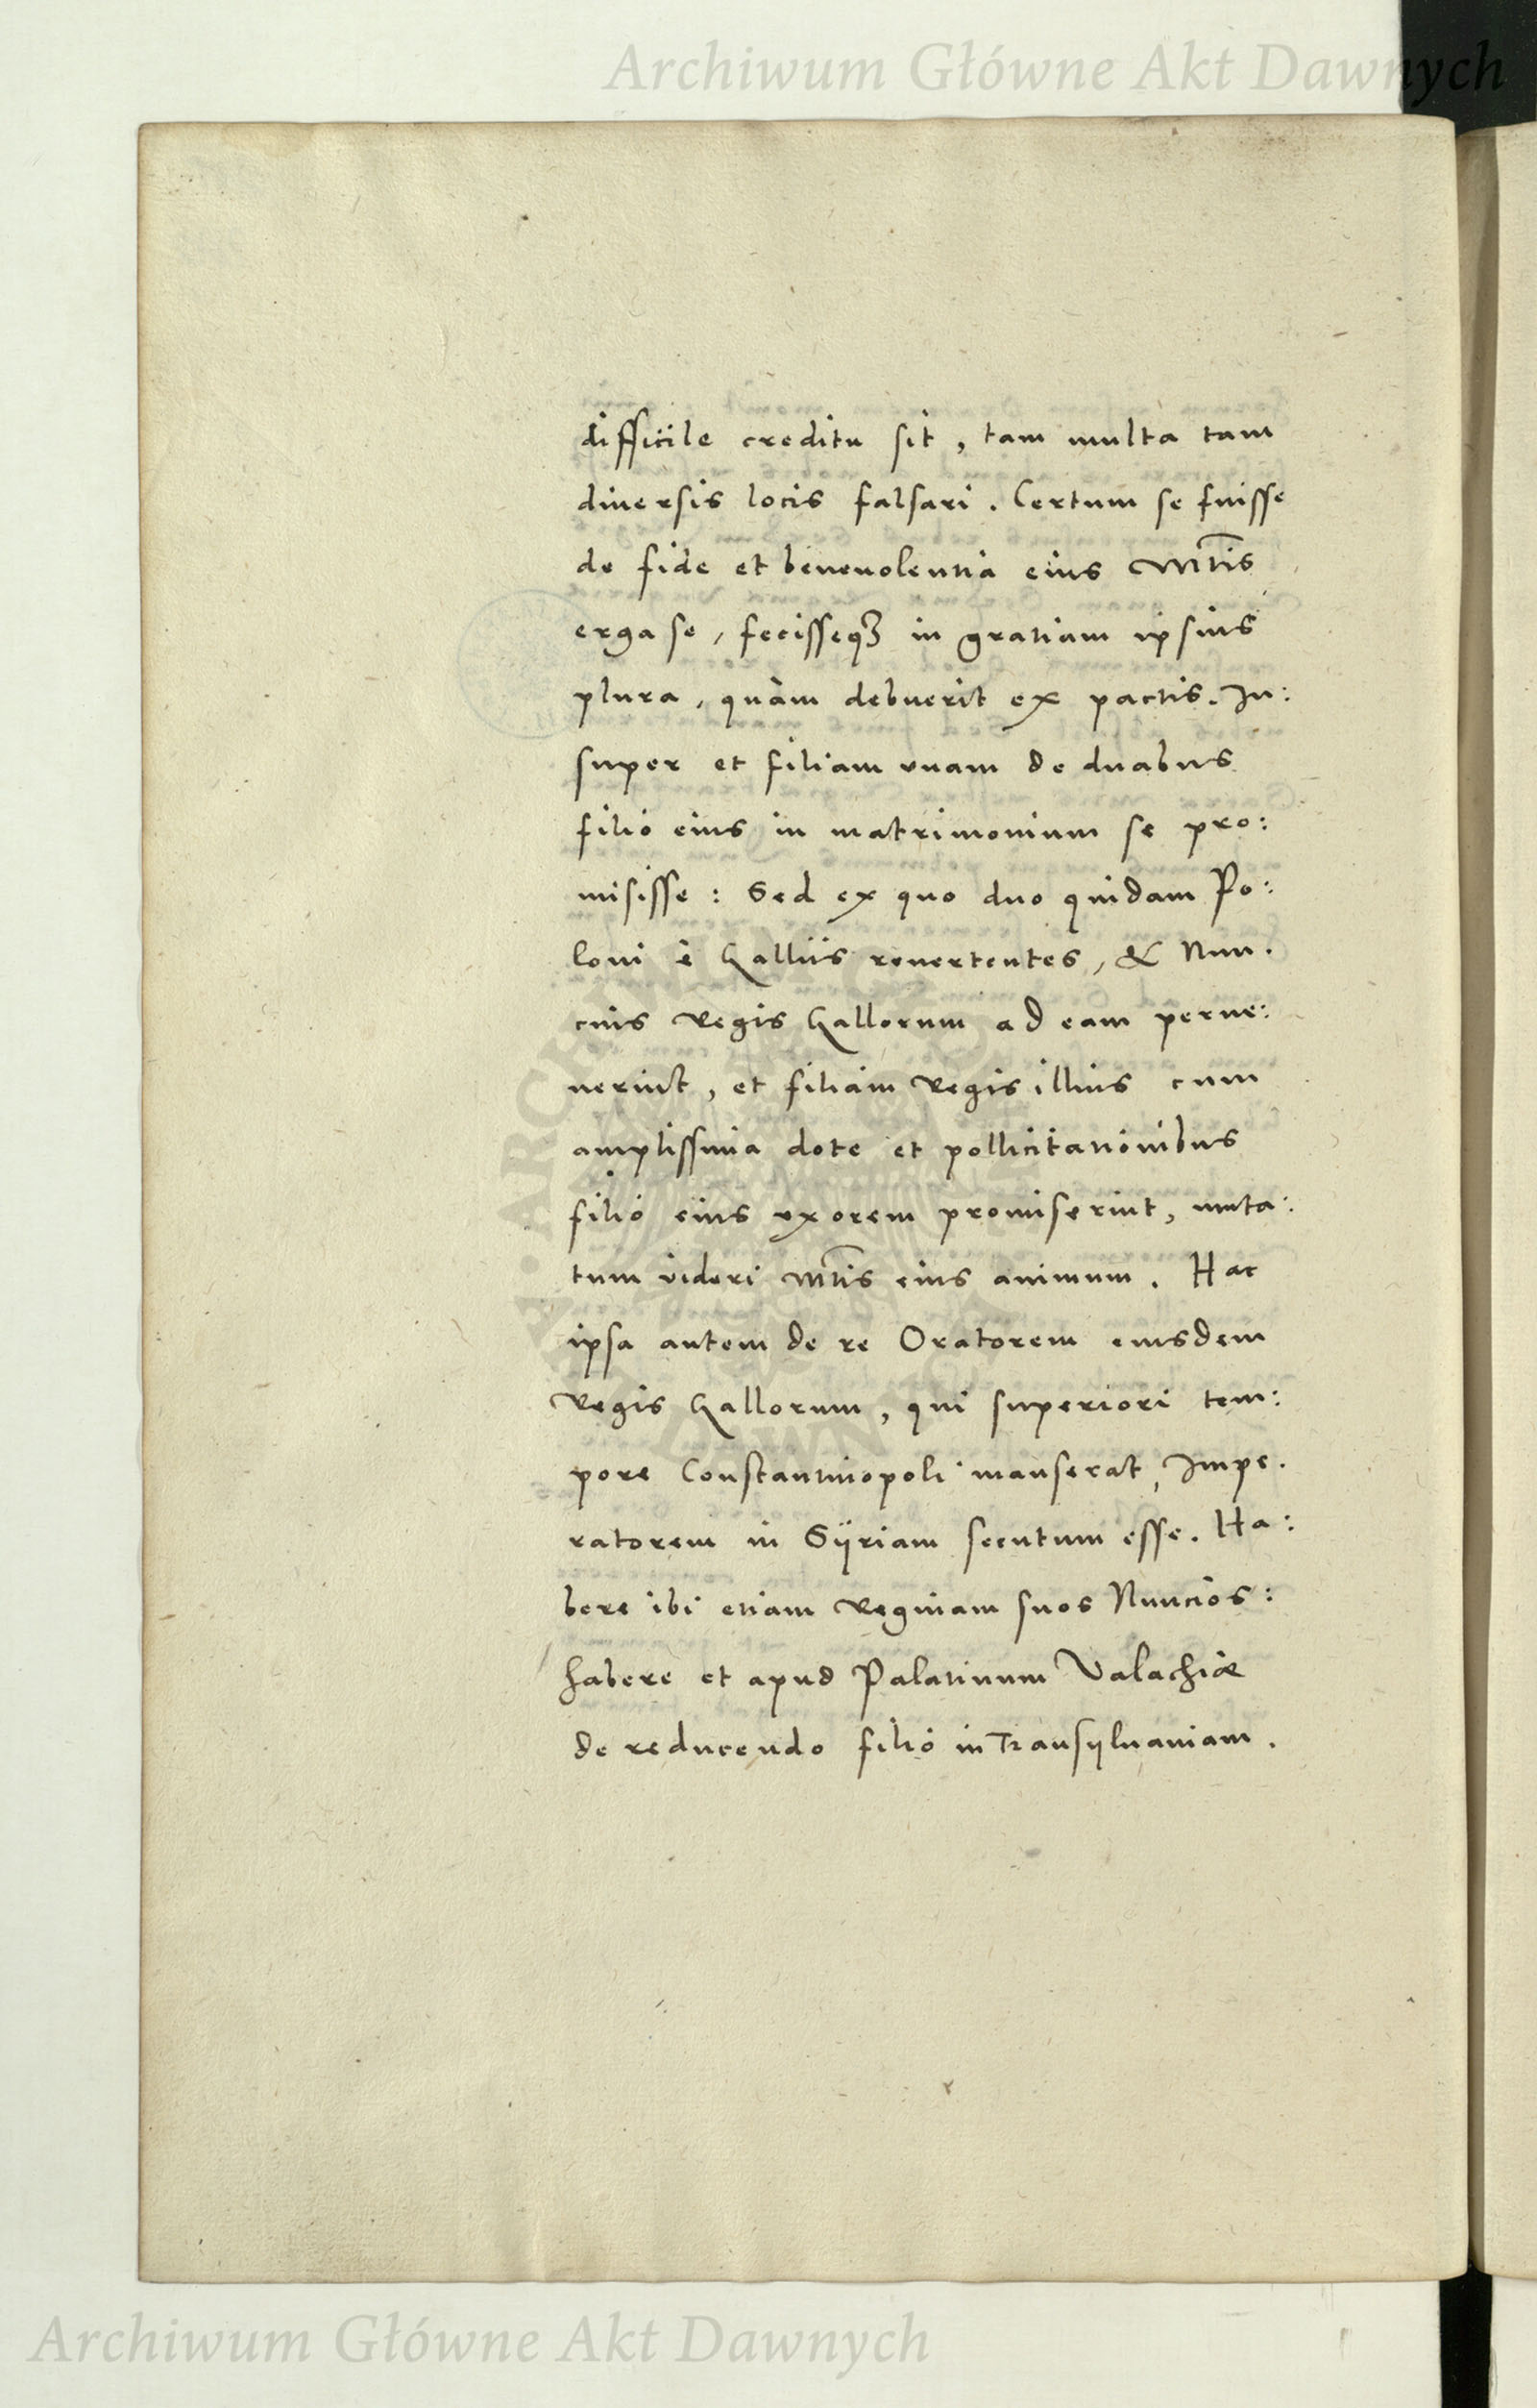 Archiwum Główne Akt Dawnych
difficile creditu sit, tam multa tam
diuersis locis falsari. Certum se fuisse
de fide et beneuolentia eius Mtis
erga se, fecisseqȝ in gratiam ipsius
plura, quàm debuerit ex pactis. In:
super et filiam unam de duabus
filio eius in matrimonium se pro:
misisse: Sed ex quo duo quidam Po:
loni è Galliis reuertentes, & Nun.
cius Regis Gallorum ad eam perue:
nerint, et filiam Regis illius cum
amplissima dote et pollicitationibus
filio eius uxorem promiserint, muta:
tum videri Mtis eius animum. Hac
ipsa autem de re Oratorem eiusdem
Regis Gallorum, qui superiori tem:
pore Constantinopoli manserat, Impe.
ratorem in Sÿriam secutum esse. Ha:
bere ibi etiam Reginam suos Nuncios:
habere et apud Palatinum Valachiæ
de reducendo filio in Transÿluaniam.
Archiwum Główne Akt Dawnych